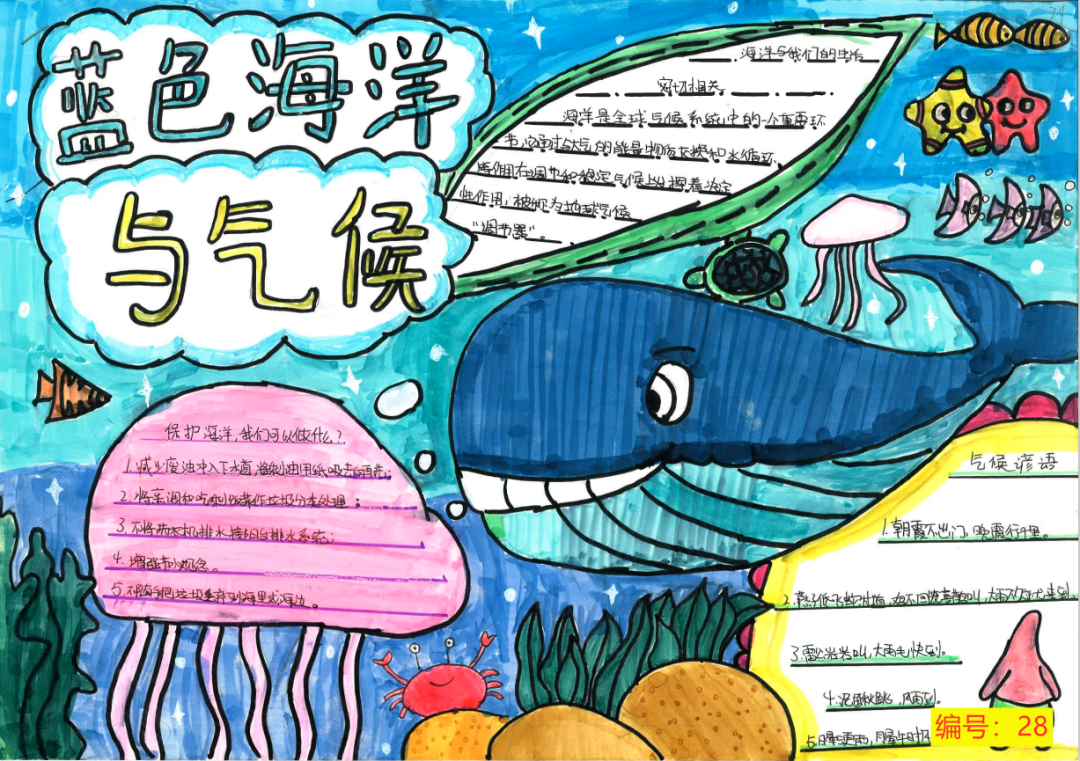 蓝色海洋
与气候
海洋与我们的生活
密切相关。
海洋是全球气候系统中的一个重要环
节,它通过与大气的能量物质交换和水循环
等作用在调节和稳定气候上发挥着决定
性作用,被称为地球气候
“调节器”。
保护海洋,我们可以做什么?
1.减少废油冲入下水道,
2.将烹调和吃剩 菜作垃圾分类处理;
3.不将洗衣机排水接 排水系统;
4.增强节 观念。
5.不随手把垃圾丢弃到海里或海边。
气候谚语
1.朝霞不出门,晚霞行千里。
2.燕子低飞蛇过道, 大雨 来到。
3.雷公岩岩叫,大雨毛快到。
4.泥鳅跳,风雨到。
5.
编号:28